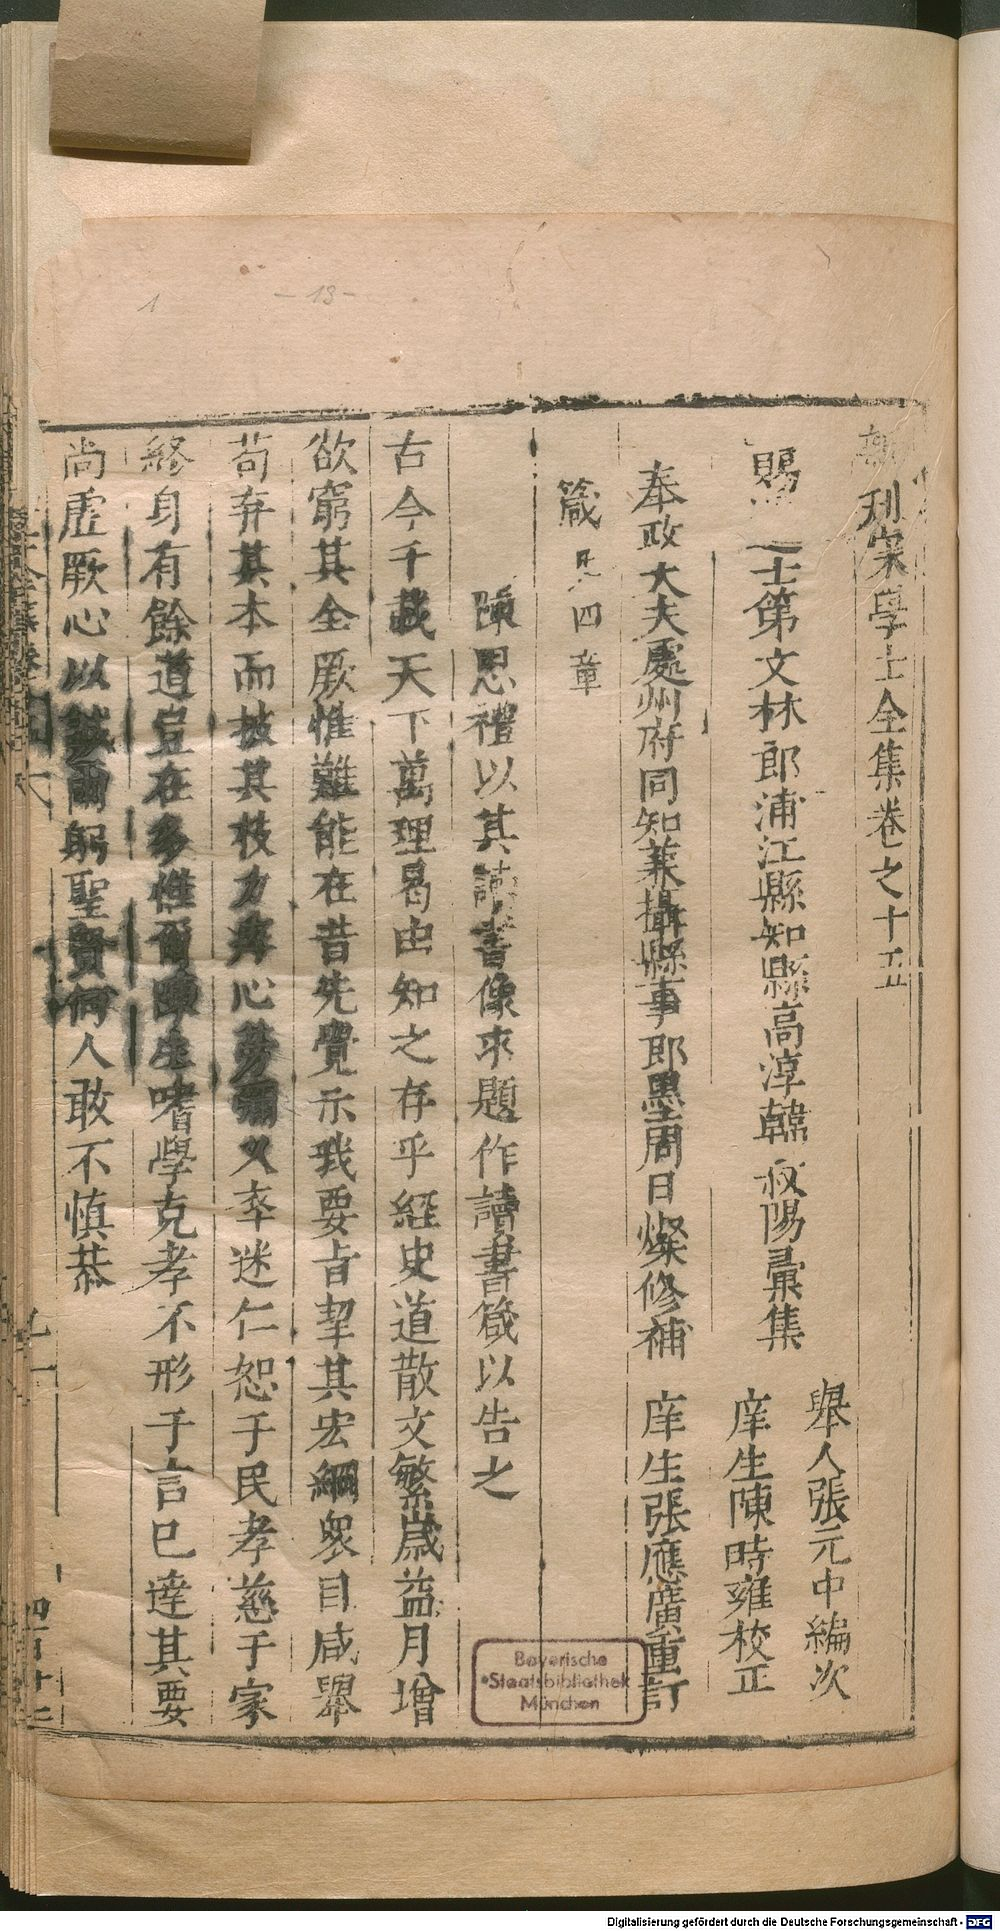 新刊宋學士全集卷之十五
賜 士第文林郎浦江縣知縣高淳韓叔陽彙集
舉人張元中編次
庠生陳時雍校正
奉政大夫處州府同知兼攝縣事郎墨周日燦修補
庠生張應廣重訂
箴 四章
陳思禮以其讀書像來題作讀書箴以告之
古今千載天下萬理曷由知之存乎經史道散文繁歲益月增
欲窮其全厥惟難能在昔先覺示我要旨挈其宏綱衆目咸舉
苟弃其本而披其枝力 心勞 乂率迷仁恕于民孝慈于家
終身有餘道豈在多惟爾陳生嗜學克孝不形于言巳達其要
尚虗厥心以誠爾躬聖賢何人敢不慎恭
1
-13-
Bayerische
Staatsbibliothek
München
Digitalisierung gefördert durch die Deutsche Forschungsgemeinschaft - DFG